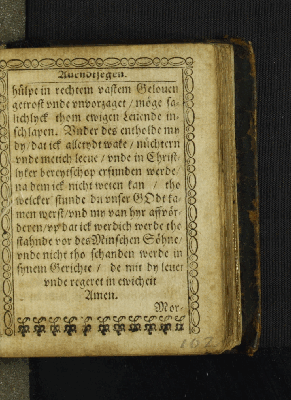 Auendtsegen.
hülpe in rechtem vastem Gelouen
getrost vnde vnvorzaget / möge sa-
lichlyck thom ewigen Leuende in-
schlapen. Vnder des entholde my
dy / dat ick alletydt wake / nüchtern
vnde metich leeue / vnde in Christ-
lyker bereytschop erfunden werde /
na dem ick nicht weten kan / tho
welcker stunde du vnser GOdt ka-
men werst / vnd my van hyr affvör-
deren / vp dat ick werdich werde tho
stahnde vor des Minschen Söhne /
vnde nicht tho schanden werde in
synem Gerichte / de mit dy leuet
vnde regeret in ewicheit
Amen.
Mor-
107